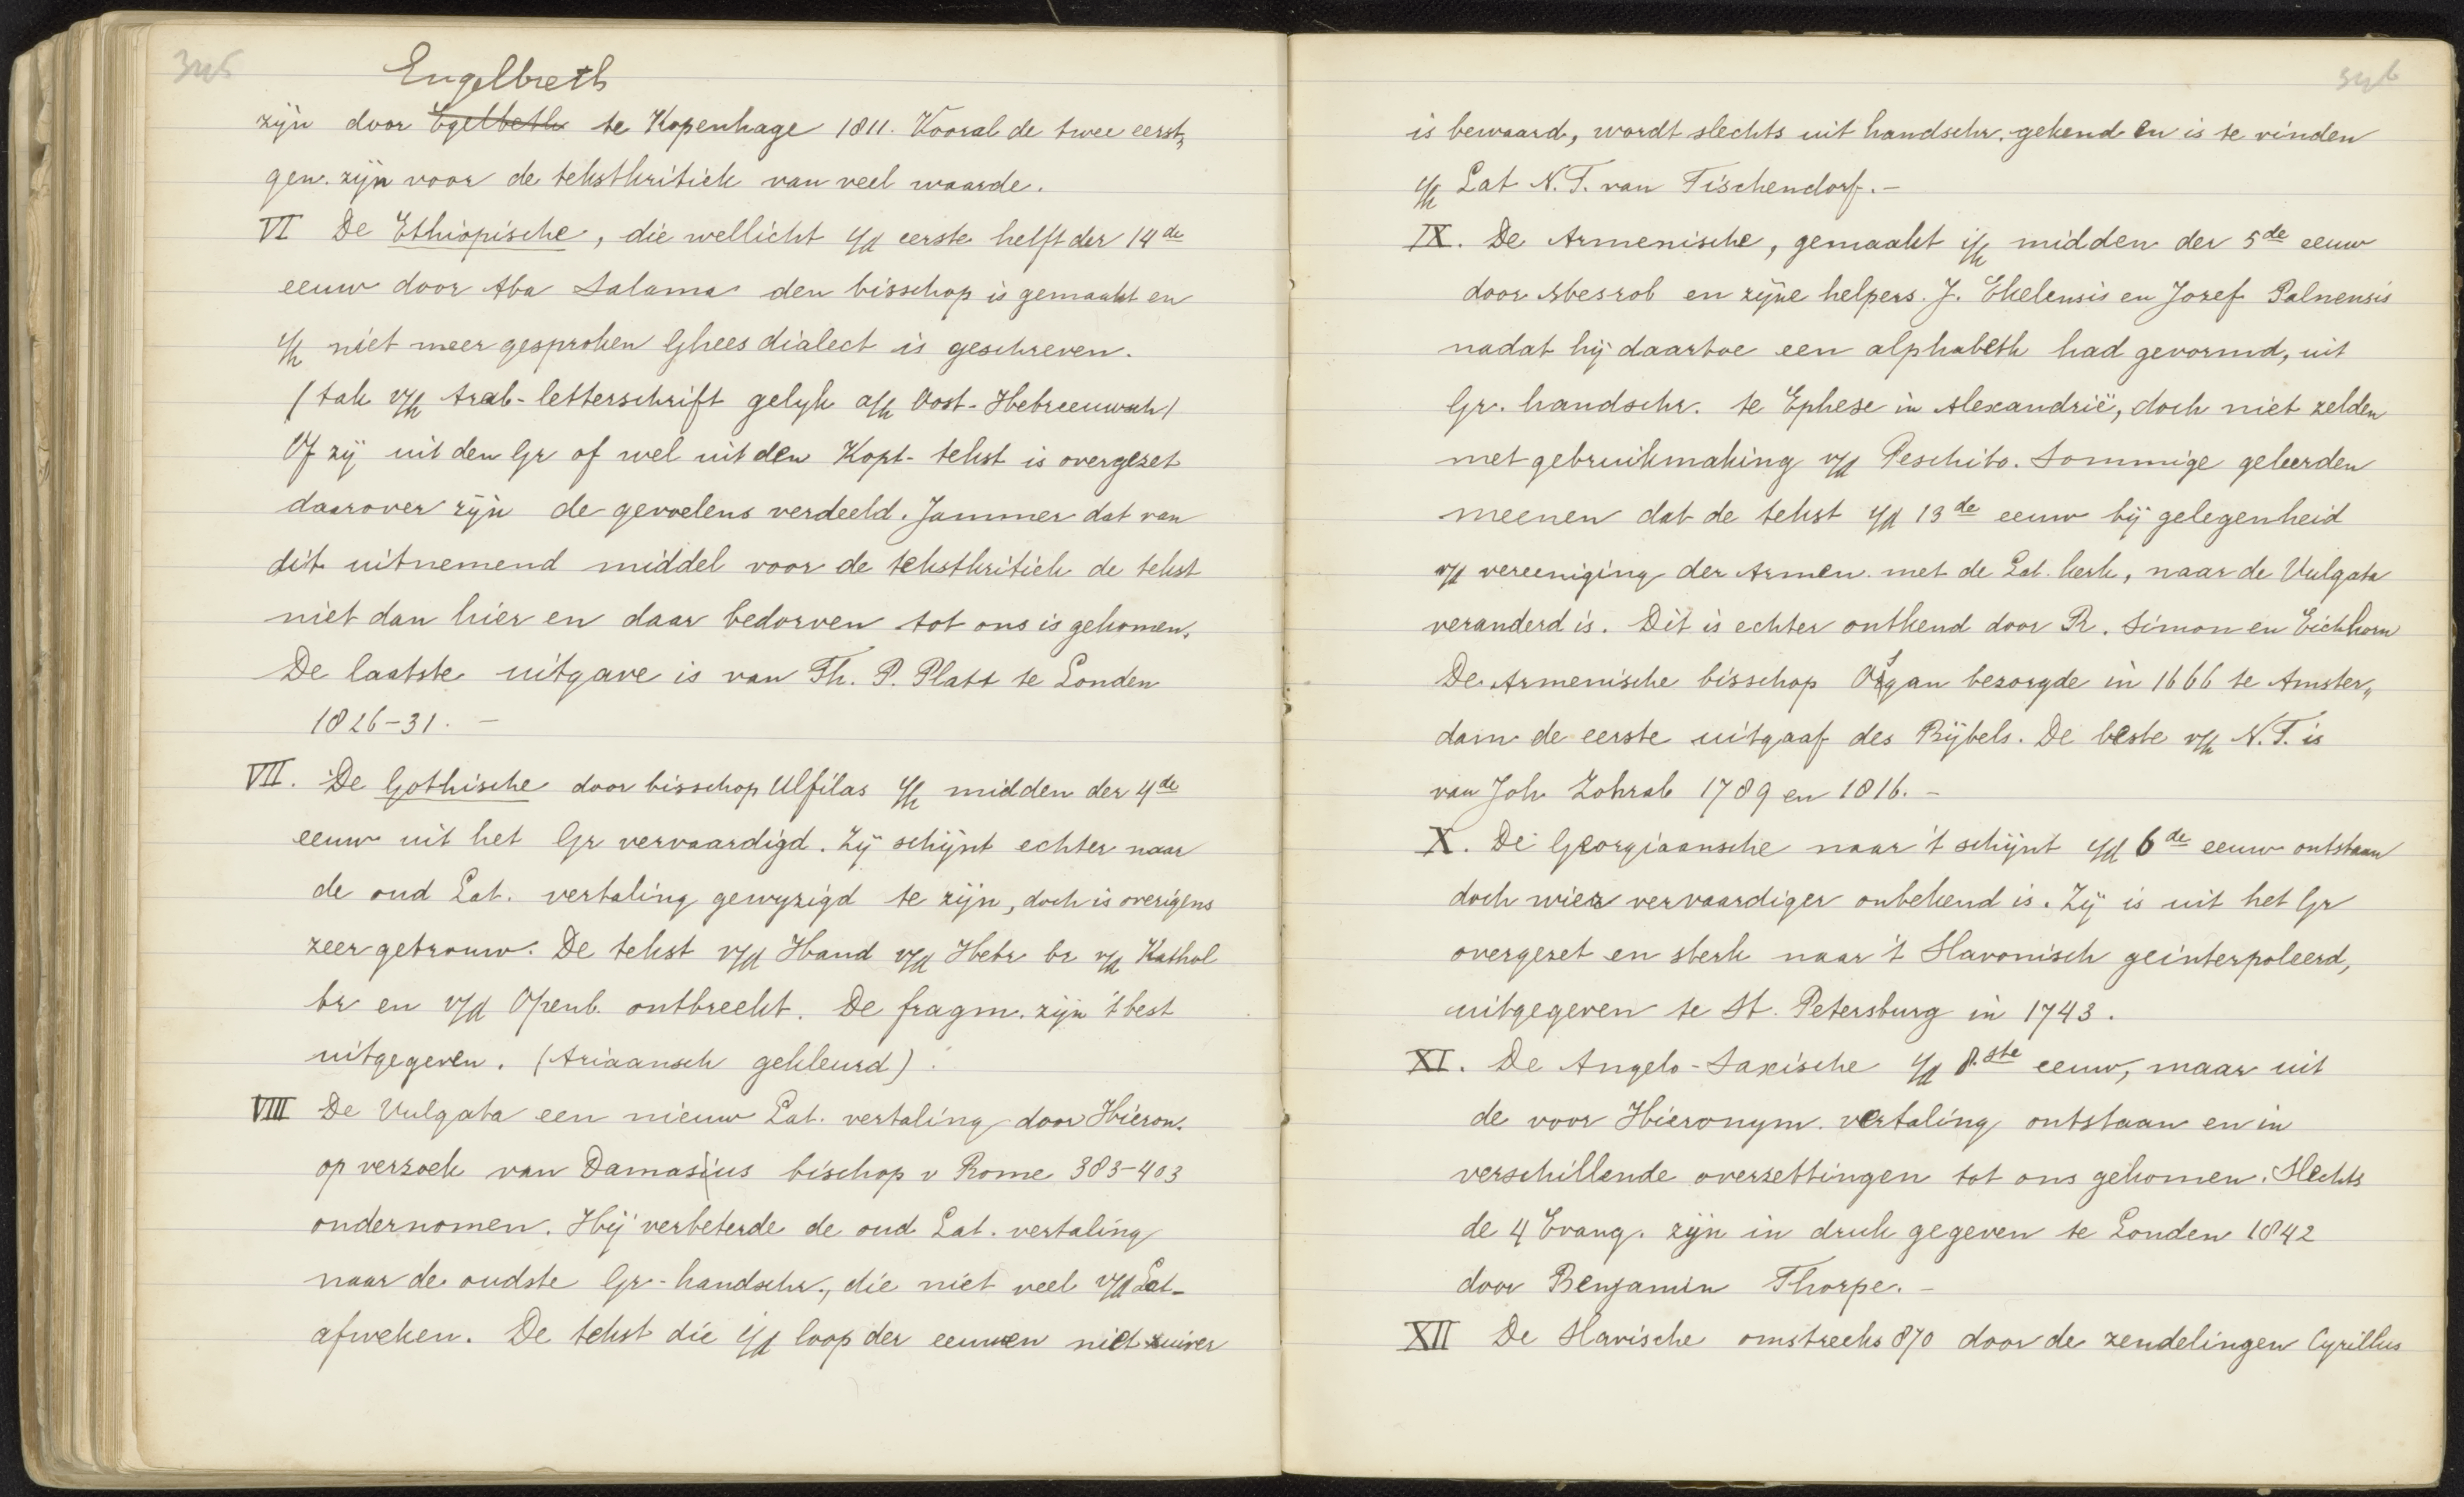 345
Engelbreth
zijn door Egelbeth te Kopenhage 1811. Vooral de twee eerst„
gen. zijn voor de tekstkritiek van veel waarde.
VI De Ethiopische, die wellicht i/d eerste helft der 14de
eeuw door Aba Salama den bisschop is gemaakt en
i/h niet meer gesproken Ghees dialect is geschreven.
(tak v/h Arab-letterschrift gelyk a/h Oost-Hebreeuwsch)
Of zij uit den Gr of wel uit den Kopt-tekst is overgezet
daarover zijn de gevoelens verdeeld. Jammer dat van
dit uitnemend middel voor de tekstkritiek de tekst
niet dan hier en daar bedorven tot ons is gekomen.
De laatste uitgave is van Th. P. Platt te Londen
1826-31. -
VII. De Gothische door bisschop Ulfilas i/h midden der 4de
eeuw uit het Gr vervaardigd. Zij schijnt echter naar
de oud Lat. vertaling gewyzigd te zijn, doch is overigens
zeer getrouw. De tekst v/d Hand v/d Hebr br v/d Kathol
br en v/d Openb. ontbreekt. De fragm. zijn 't best
uitgegeven. (Ariaansch gekleurd).
VIII De Vulgata een nieuw Lat. vertaling door Hieron.
op verzoek van Damasius bischop v Rome 383-403
ondernomen. Hij verbeterde de oud Lat. vertaling
naar de oudste Gr-handschr., die niet veel v/d Lat-
afweken. De tekst die i/d loop der eeuwen niet zuiver
346
is bewaard, wordt slechts uit handschr. gekend en is te vinden
i/h Lat N.T. van Tischendorf. -
IX. De Armenische, gemaakt i/h midden der 5de eeuw
door Mesrob en zijne helpers. J. Ekelensis en Jozef Palnensis
nadat hij daartoe een alphabeth had gevormd, uit
Gr. handschr. te Ephese in Alexandrië, doch niet zelden
met gebruikmaking v/d Peschito. Sommige geleerden
meenen dat de tekst i/d 13de eeuw bij gelegenheid
v/d vereeniging der Armen. met de Lat. kerk, naar de Vulgata
veranderd is. Dit is echter ontkend door R. Simon en Eichhorn
De Armenische bisschop Osgan bezorgde in 1666 te Amster„
dam de eerste uitgaaf des Bijbels. De beste v/h N.T. is
van Joh Zohrab 1789 en 1816. -
X. De Georgiaansche naar 't schijnt i/d 6de eeuw ontstaan
doch wier vervaardiger onbekend is. Zij is uit het Gr
overgezet en sterk naar 't Slavonisch geinterpoleerd,
uitgegeven te St. Petersburg in 1743.
XI. De Angelo-Saxische i/d 8.ste eeuw, maar uit
de voor Hieronym. vertaling ontstaan en in
verschillende overzettingen tot ons gekomen. Slechts
de 4 Evang. zijn in druk gegeven te Londen 1842
door Benjamin Thorpe. -
XII De Slavische omstreeks 870 door de zendelingen Cyrillus